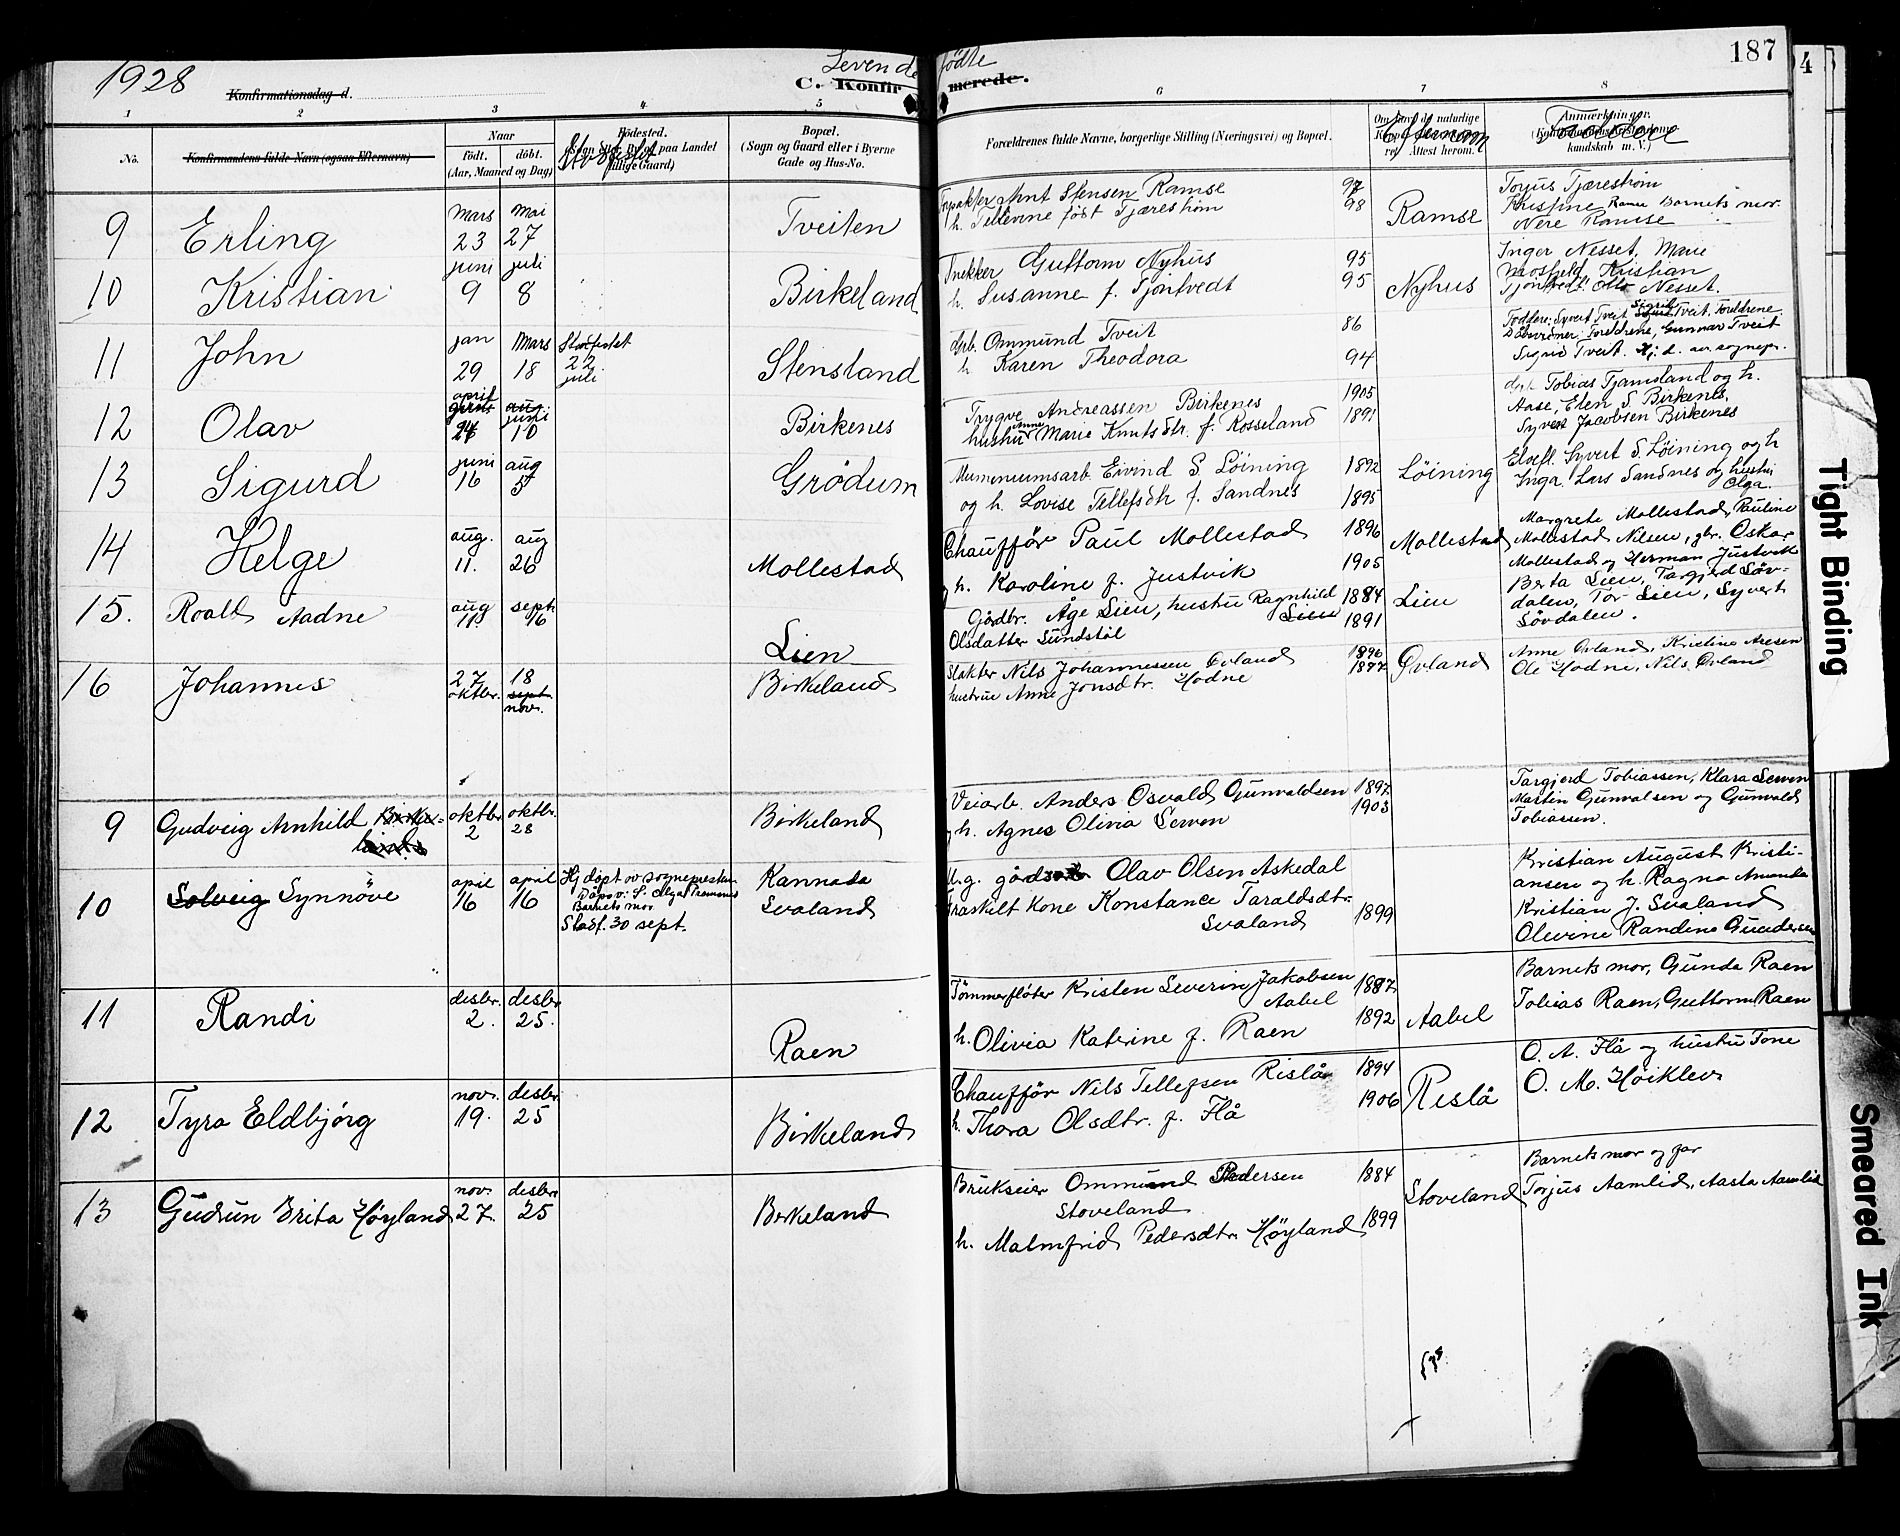 1928
Konfirmationsdag d.
Levende fødte
C. Konfirmerede.
187
4
1 2 3 4 5 6 7 8
No.
Konfirmandens fulde Navn (ogsaa Efternavn)
Naar
født. døbt.
(Aar, Maaned og Dag)
Fødested.
Stadfestet
Bopæl.
(Sogn og Gaard eller i Byerne
Gade og Hus-No.
Forældrenes fulde Navne, borgerlige Stilling (Næringsvei) og Bopæl.
Efternavn
Attest herom.
Anmærkninger.
Faddere
kundskab m. V.)
9 Erling
Mars 23
Mai 27
Tveiten
Arnt Stensen Ramse 97
h. Tellevine født Tjærestrøm 98
Ramse
Torjus Tjærestrøm
Kristine Ramse Barnets mor
Nere Ramse
10 Kristian
juni 9
juli 8
Birkeland
Snekker Guttorm Nyhus 95
h. Susanne f. Tjøntvedt 95
Nyhus
Inger Nesset, Marie
Mosfjeld Kristian
Tjøntvedt Olto Nesset.
11 John
jan 29
Mars 18
Stadfestet
22
juli
Stensland
gbr. Ommund Tveit 86
h. Karen Theodora 94
Faddere: Syvert Tveit Sigrid Tveit, Foreldrene.
Dåbsvidner: Foreldrene, Gunnar Tveit
Signe Tveit. Hj. d. av sognepr.
12 Olav
april
24
aug.
juni
10
Birkenes
Trygve Andreassen Birkenes 1905
hustru Anne Marie Knutsdtr. f. Rosseland 1891
Tobias Tjamsland og h.
Aase, Elen S. Birkenes,
Syvert Jacobsen Birkenes
13 Sigurd
juni 16
aug 5
Grødum
Eivind S. Løining 1892
og h. Lovise Tellefsdtr f. Sandnes 1895
Løining
Syvert S. Løining og h
Inga. Lars Sandnes og hustru
Olga.
14 Helge
aug. 11.
aug 26
Mollestad
Chauffør Paul Mollestad 1896
og h. Karoline f. Justvik 1905
Mollestad
Margrete Mollestad, Pauline
Mollestad Nilsen, gbr. Oskar
Mollestad og Herman Justvik
15. Roald Aadne
aug 11.
sept. 16
Lien
Gårdbr. Åge Lien, hustru Ragnhild Lien 1884
Olsdatter Sundstøl 1891
Lien
Berta Lien, Targjerd Søv-
dalen, Tor Lien, Syvert
Søvdalen.
16 Johannes
27 oktbr.
18 sept nov.
Birkeland
Slakter Nils Johannessen Øvland 1896
hustru Anne Jonsdtr. Hodne 1877
Øvland
Anne Øvland, Kristine Aresen
Ole Hodne, Nils Øvland
9 Gudveig Arnhild
oktbr 2
oktbr. 28
Birkeland
Veiarb. Anders Osvald Gunvaldsen 1897
og h. Agnes Olivia Lerven 1903
Targjerd Tobiassen, Klara Lerven
Martin Gunvalsen og Gunvald
Tobiassen.
10 Solveig Synnøve
april 16
april 16
Hj. døpt av sognepresten
Barnets mor
Stadf. 30 sept.
Kannada
Svaland
U.g. Olav Olsen Askedal
Fraskilt Kone Konstance Taraldsdtr. 1899
Svaland
Kristian August Kristi-
ansen og h. Ragna Amanda
Kristian J. Svaland
Olevine Randine Gundersen
11 Randi
desbr. 2.
desbr 25.
Raen
Tømmerfløter Kristen Severin Jakobsen 1887
Aabel
h. Olivia Katrine f. Raen 1892
Aabel
Barnets mor, Gunda Raen
Tobias Raen, Guttorm Raen
12 Tyra Eldbjørg
nov. 19.
desbr 25
Birkeland
Chauffør Nils Tellefsen Rislå 1894
h. Thora Olsdtr. f. Flå 1906
Rislå
O. A. Flå og hustru Tone
O. M. Høiklev
13 Gudrun Brita Høyland
nov. 27
desbr 25
Birkeland
Brukseier Ommund Pedersen 1884
Stoveland
h. Malmfrid Pedersdtr. Høyland 1899
Stoveland
Barnets mor og far
Torjus Aamlid, Aasta Aamlid
Tight Binding
Smeared Ink